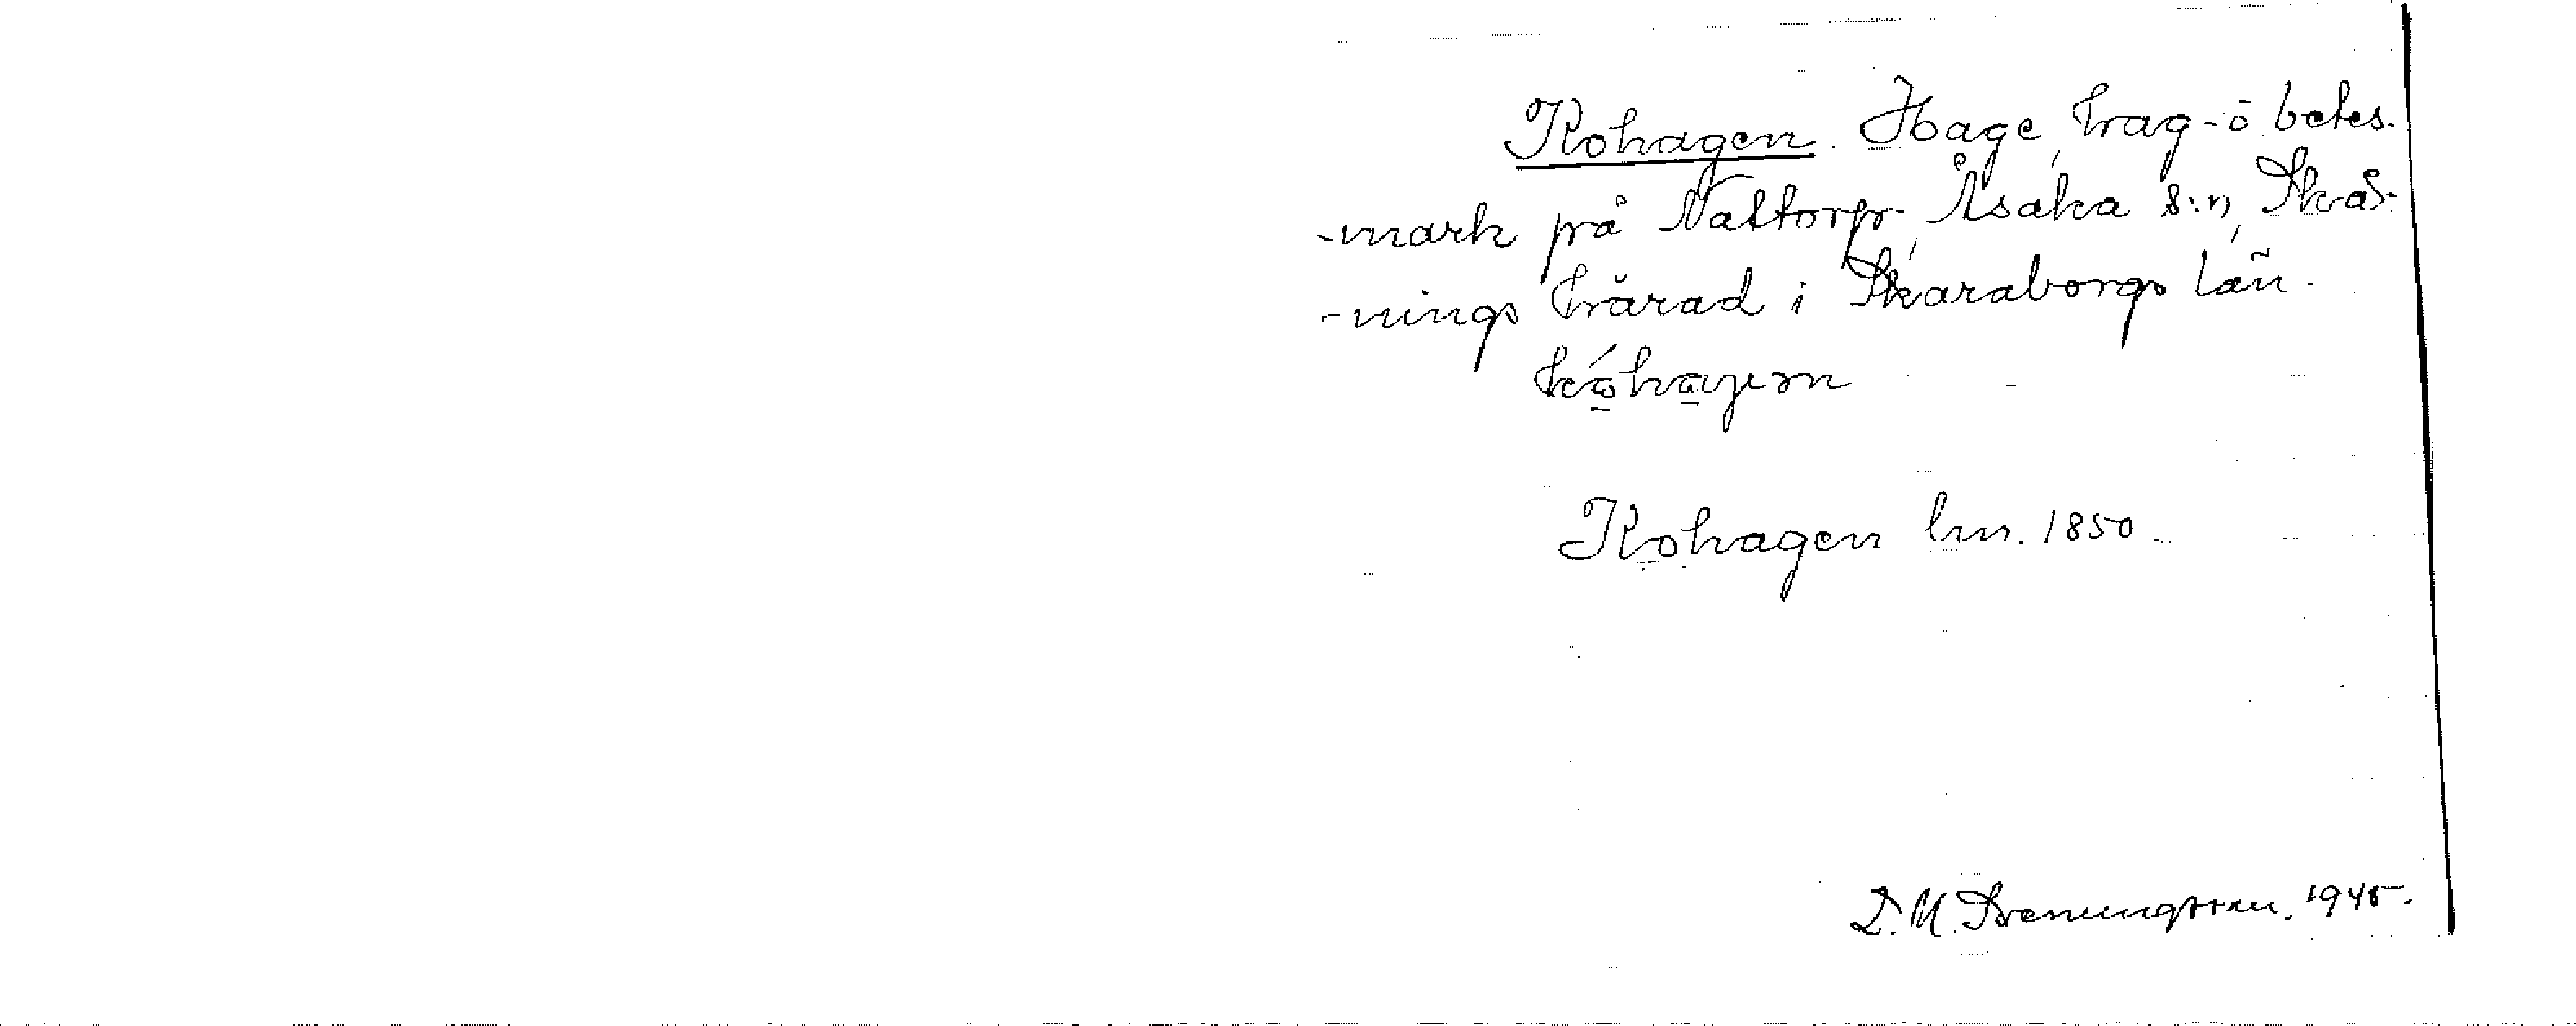 Kohagen. Hage, hag- o. betes-
-mark på Nattorp, Åsaka s:n, Skå-
-nings härad i Skaraborgs län.
Kohagen hm. 1850.
D. M. Svenungsson. 1945.